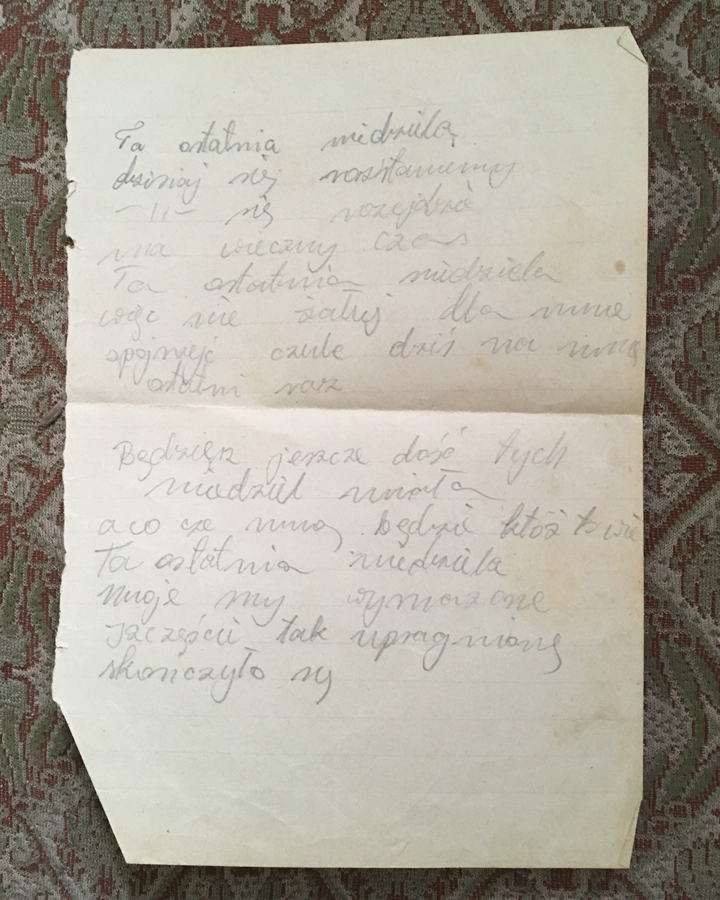 Ta ostatnia niedziela
dzisiaj się rozstaniemy
—II— się rozejdzie
na wieczny czas
Ta ostatnia niedziela
więc nie żałuj dla mnie
spojrzyj czule dziś na mnie
ostatni raz
Będziesz jeszcze dość tych
niedziel miała
a co ze mną będzie któż to wie
Ta ostatnia niedziela
moje sny wymarzone
szczęście tak upragnione
skończyło się